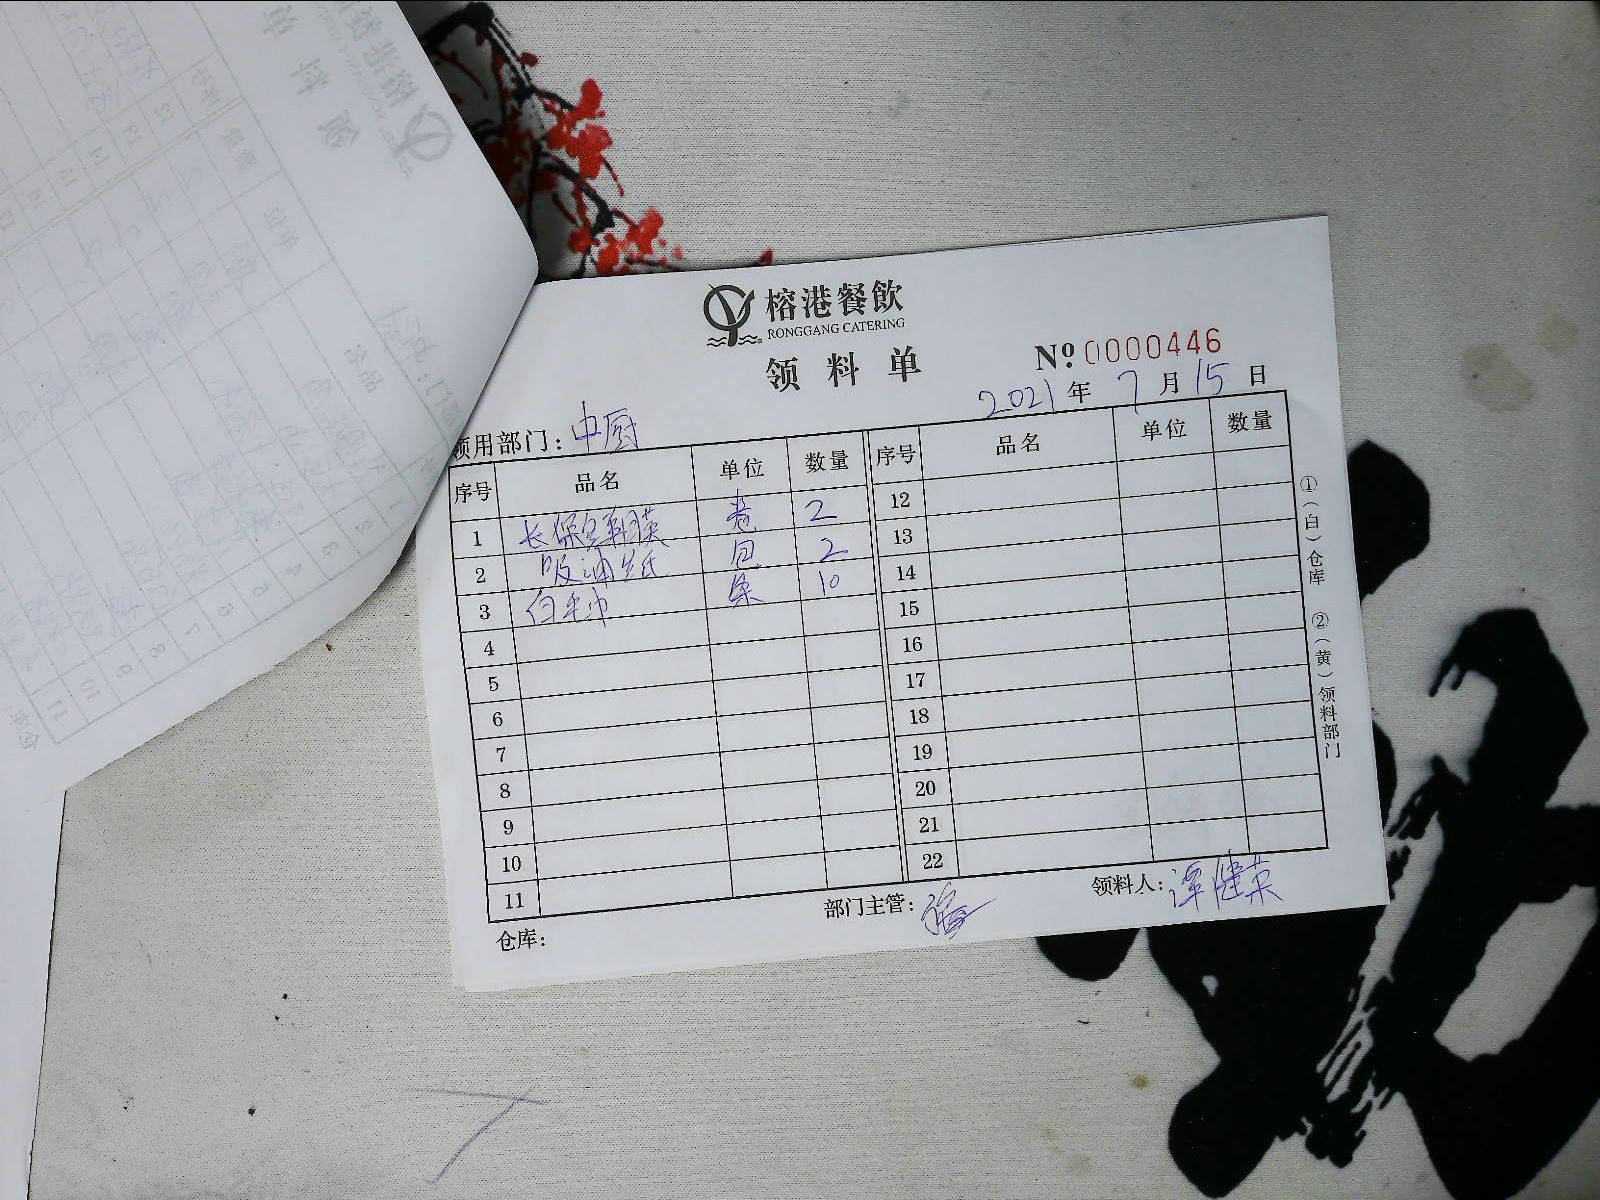 榕港餐飲
RONGGANG CATERING
领料单
Nº 0000446
2021年7月15日
领用部门：中厨
序号 品名 单位 数量 序号 品名 单位 数量
1 长保鲜膜 卷 2 12
2 吸油纸 包 2 13
3 白毛巾 条 10 14
4 15
5 16
6 17
7 18
8 19
9 20
10 21
11 22
仓库： 部门主管： 领料人：谭健英
①（白）仓库 ②（黄）领料部门